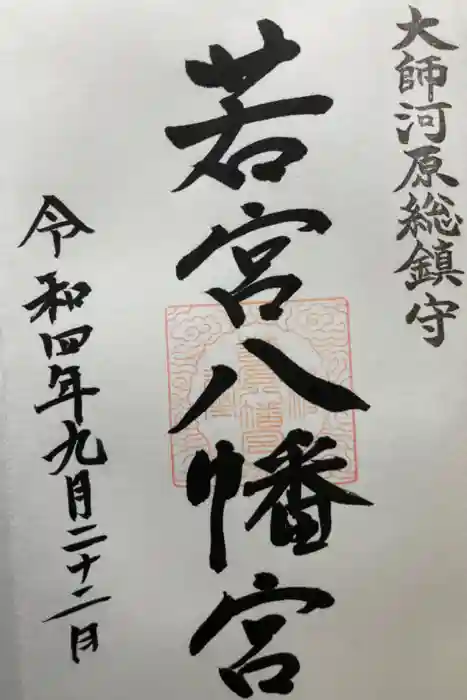 大師河原総鎮守
若宮八幡宮
令和四年九月二十二日